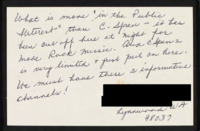 What is more "in the Public
Interest" than C-Span - it has
been cut off here at night for
more Rock Music. Our CSpan
is very limited & just put on here.
We must have these informative
channels!
Lynnwood WA
98037